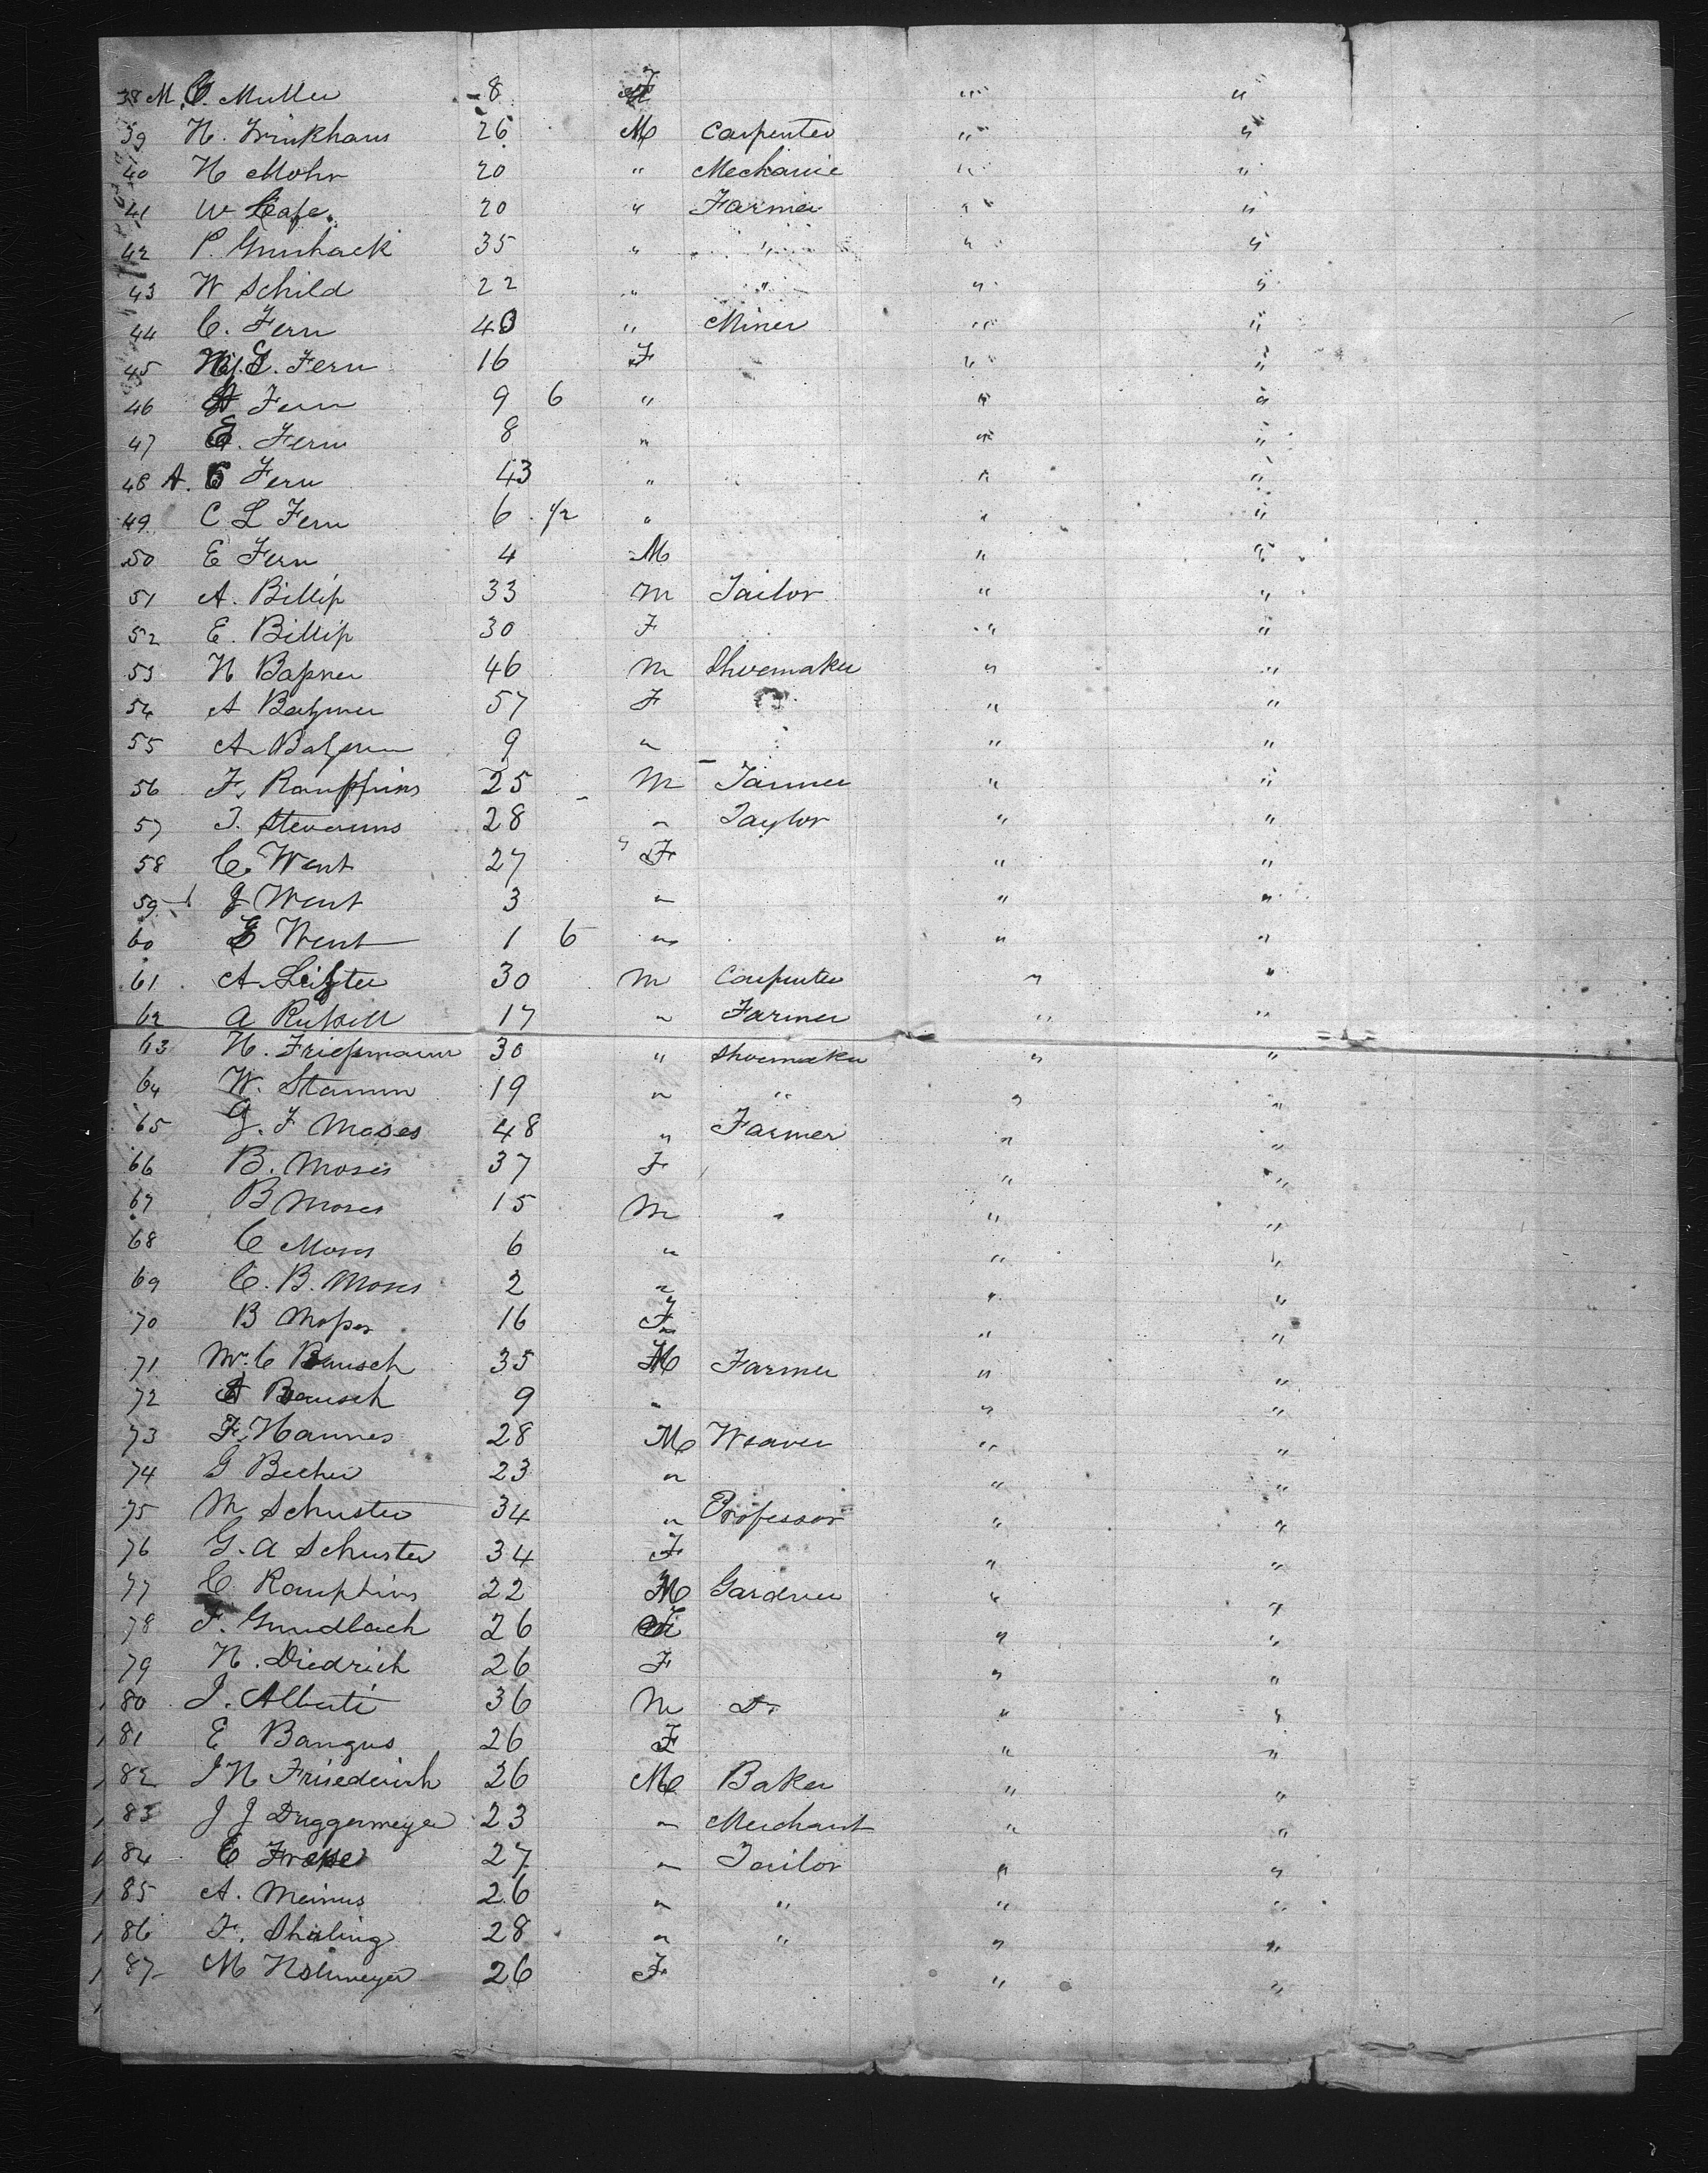 38 M. C. Muller 8 F " "
39 H. Frinkhaus 26 M Carpenter " "
40 H Mohr 20 " Mechanic " "
41 W Cafe 20 " Farmer " "
42 P. 35 " " " "
43 W Schild 22 " " " "
44 C. Fern 43 " Miner " "
45 L. Fern 16 F " "
46 Fern 9 6 " " "
47 E. Fern 8 " " "
48 A. C Fern 43 " " "
49 C L Fern 6 1/2 " " "
50 E Fern 4 M " "
51 A. Billip 33 M Tailor " "
52 E. Billip 30 F " "
53 H 46 M Shoemaker " "
54 A 57 F " "
55 A 9 " " "
56 F. 25 M " "
57 28 " Taylor " "
58 C. Went 27 F " "
59 J Went 3 " " "
60 Went 1 6 " " "
61 A 30 M Carpenter " "
62 A 17 " Farmer " "
63 H. Frießmann 30 " Shoemaker " "
64 W. Stamm 19 " " " "
65 G. F Moses 48 " Farmer " "
66 B. Moses 37 F " "
67 B Moses 15 M " " "
68 C Moses 6 " " "
69 C. B. Moses 2 " " "
70 B Moßes 16 F " "
71 C Bausch 35 M Farmer " "
72 Bausch 9 " " "
73 F. Hannes 28 M Weaver " "
74 G Becher 23 " " "
75 M Schuster 34 " Professor " "
76 G. A Schuster 34 F " "
77 C 22 M Gardner " "
78 F. Gundlach 26 F " "
79 H. Diedrich 26 F " "
80 J. Alberti 36 M Dr " "
81 E Bangus 26 F " "
82 J H Friederich 26 M Baker " "
83 J J Duggermeyer 23 " Merchant " "
84 C 27 " Tailor " "
85 A. Meinus 26 " " " "
86 F. 28 " " " "
87 M 26 F " "